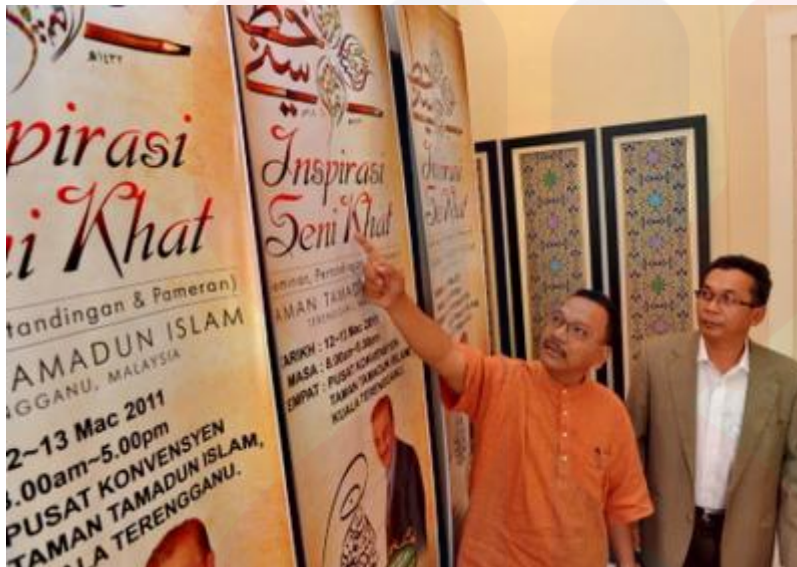 pirasi
ni Khat
tandingan & Pameran)
AMADUN ISLAM
NGGANU, MALAYSIA
2~13 Mac 2011
.00am~5.00pm
PUSAT KONVENSYEN
TAMAN TAMADUN ISLAM,
ALA TERENGGANU.
خط
سيني
Inspirasi
Seni Khat
AMAN TAMADU
ARIKH : 12~13 Mac 2011
MASA : 8.00am~5.00pm
EMPAT : PUSAT KONVENSYEN
TAMAN TAMADUN ISLAM,
KUALA TERENGGANU.